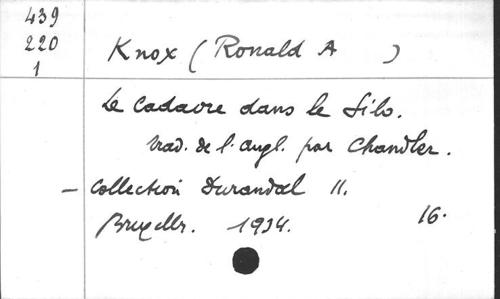 439
220
1
Knox (Ronald A )
Le Cadavre dans le Silo.
trad. de l'angl. par Chandler.
- Collection Durandal II.
Bruxelles. 1934. 16.